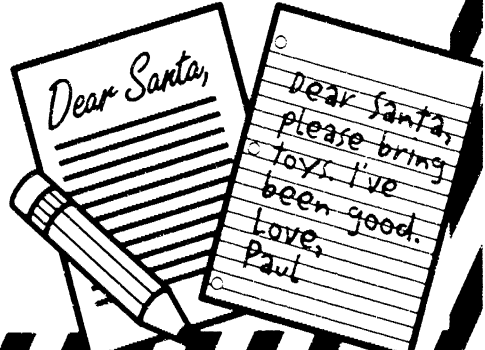 Dear Santa,
Dear Santa,
please bring
toys. I've
been good.
Love,
Paul